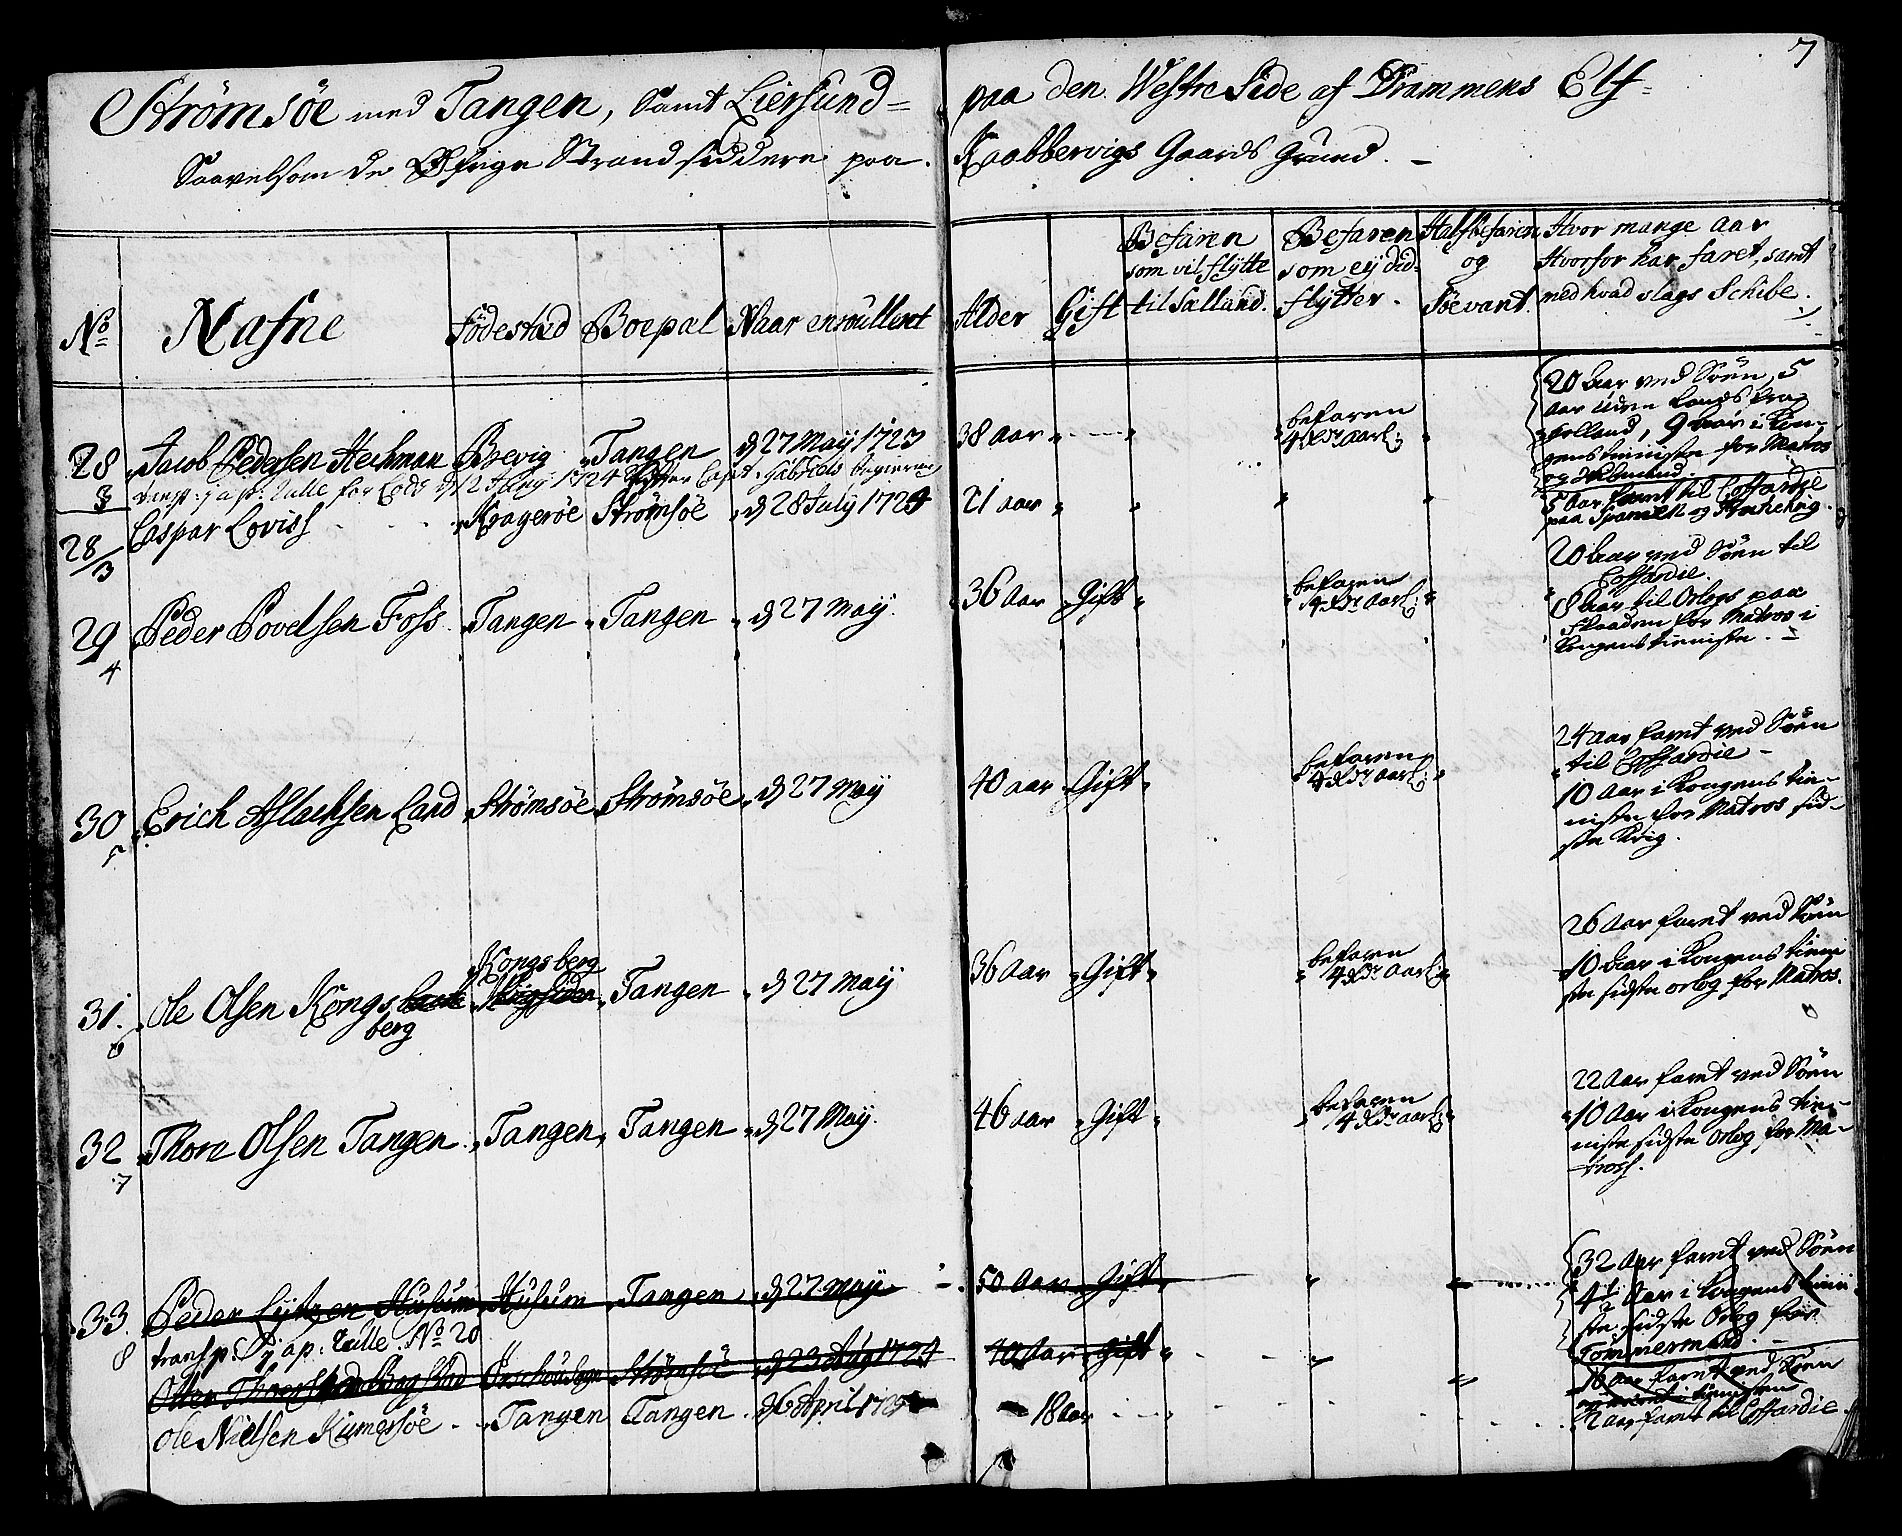 7
Strømsøe med Tangen, Samt Liersund= paa den Westre Side af Drammens Elf=
Saavelsom de Øfrige Strandsiddere paa Kaabbervigs Gaards Grund. –
No Nafne Fødestæd Boepæl Naar enroullert Alder Gift
Befaren som vil flÿtte til Siælland.
Befaren som eÿ did flÿtter.
Halfbefaren og Søevant.
Hvor mange aar Hvorfor har faret, samt med hvad slags Schibe.
28 3 Jacob Pedersen Hechman Brevig Tangen d 27 Maÿ 1723 38 aar befaren 4 Rdr aarl:
20 Aar ved Søen, 5
aar uden Lands fra
Holland, 9 Aar i Kon-
gens tienniste for Matros
28/3 Caspar Loviss Kragerøe Strømsøe d 28 July 1724 21 aar
5 Aar faret til Coffardie
paa Spanien og
29 4 Peder Povelsen Foss Tangen Tangen d 27 Maÿ 36 Aar Gift befaren 4 Rdr Aarl:
20 Aar ved Søen til
Coffardie.
18 Aar til Orlogs paa
Flaaden for Matros i
Kongens tienniste. –
30 5 Erich Aslachsen Land Strømsøe Strømsøe d 27 Maÿ 40 aar Gift befaren 4 Rdr aarl:
24 aar faret ved Søen
til Coffardie –
10 Aar i Kongens tien-
niste for Matros sid-
ste Krig.
31. 6 Ole Olsen Kongs berg Kongsberg Tangen d 27 Maÿ 36 Aar Gift befaren 4 Rdr Aarl:
26 Aar faret ved Søen
10 Aar i Kongens tieni
ste sidste orlog for Matros.
32 7 Thore Olsen Tangen Tangen Tangen d 27 Maÿ. 46 aar Gift befaren 4 Rdr aarl:
22 Aar faret ved Søen
10 Aar i Kongens tien-
niste sidste Orlog for Ma-
tross.
33. 8 Peder Husum Husum Tangen d 27 Maÿ 50 Aar Gift
32 Aar faret ved Søen
4½ Aar i Kongens tieni
ste sidste Orlog for
Tømmermand. –
transp: j ap: Rulle No 20
Strømsøe d 23 Aug 1724 40 Aar Gift
16 aar faret ved Søen
Ole Nielsen Kumersøe Tangen Tangen d 6 April 18 aar
2 Aar faret til Coffardie